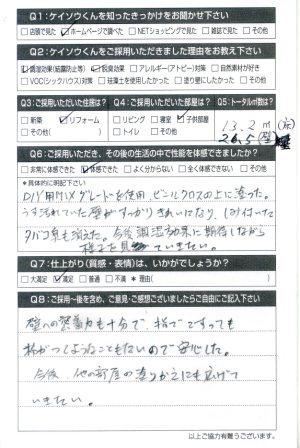 Q1:ケイソウくんを知ったきっかけをお聞かせ下さい
□店頭で見た ☑ホームページで調べた □NETショッピングで見た □雑誌で見た □その他
Q2:ケイソウくんをご採用いただきました理由をお教え下さい
☑調湿効果(結露防止等) ☑脱臭効果 □アレルギー(アトピー)対策 □自然素材が好き
□VOC(シックハウス)対策 □珪藻土を使用したかった □塗り壁にしたかった □その他
Q3:ご採用いただいた住居は?
□新築 ☑リフォーム
□その他
Q4:ご採用いただいた部屋は?
□リビング □寝室 ☑子供部屋
□トイレ □その他
Q5:トータル㎡数は?
13.2㎡
26.5
Q6:ご採用いただき、その後の生活の中で性能を体感できましたか?
□非常に体感できた ☑体感できた □よく分からない □全く体感できない □その他
*具体的に明記下さい
DIY用MIXグレートを使用、ビニルクロスの上に塗った。
うす汚れていた壁がすっかりきれいになり、しみ付いた
タバコ臭も消えた。今後調湿効果に期待しながら
様子を見ていきたい。
Q7:仕上がり(質感・表情)は、いかがでしょうか?
□大満足 ☑満足 □普通 □不満 *理由( )
Q8:ご採用~後を含め、ご意見・ご感想ございましたらご自由にご記入下さい
壁への密着力も十分で、指でこすっても
粉がつくようなこともないので安心した。
今後、他の部屋の塗りかえにも広げて
いきたい。
以上ご協力有難うございます。